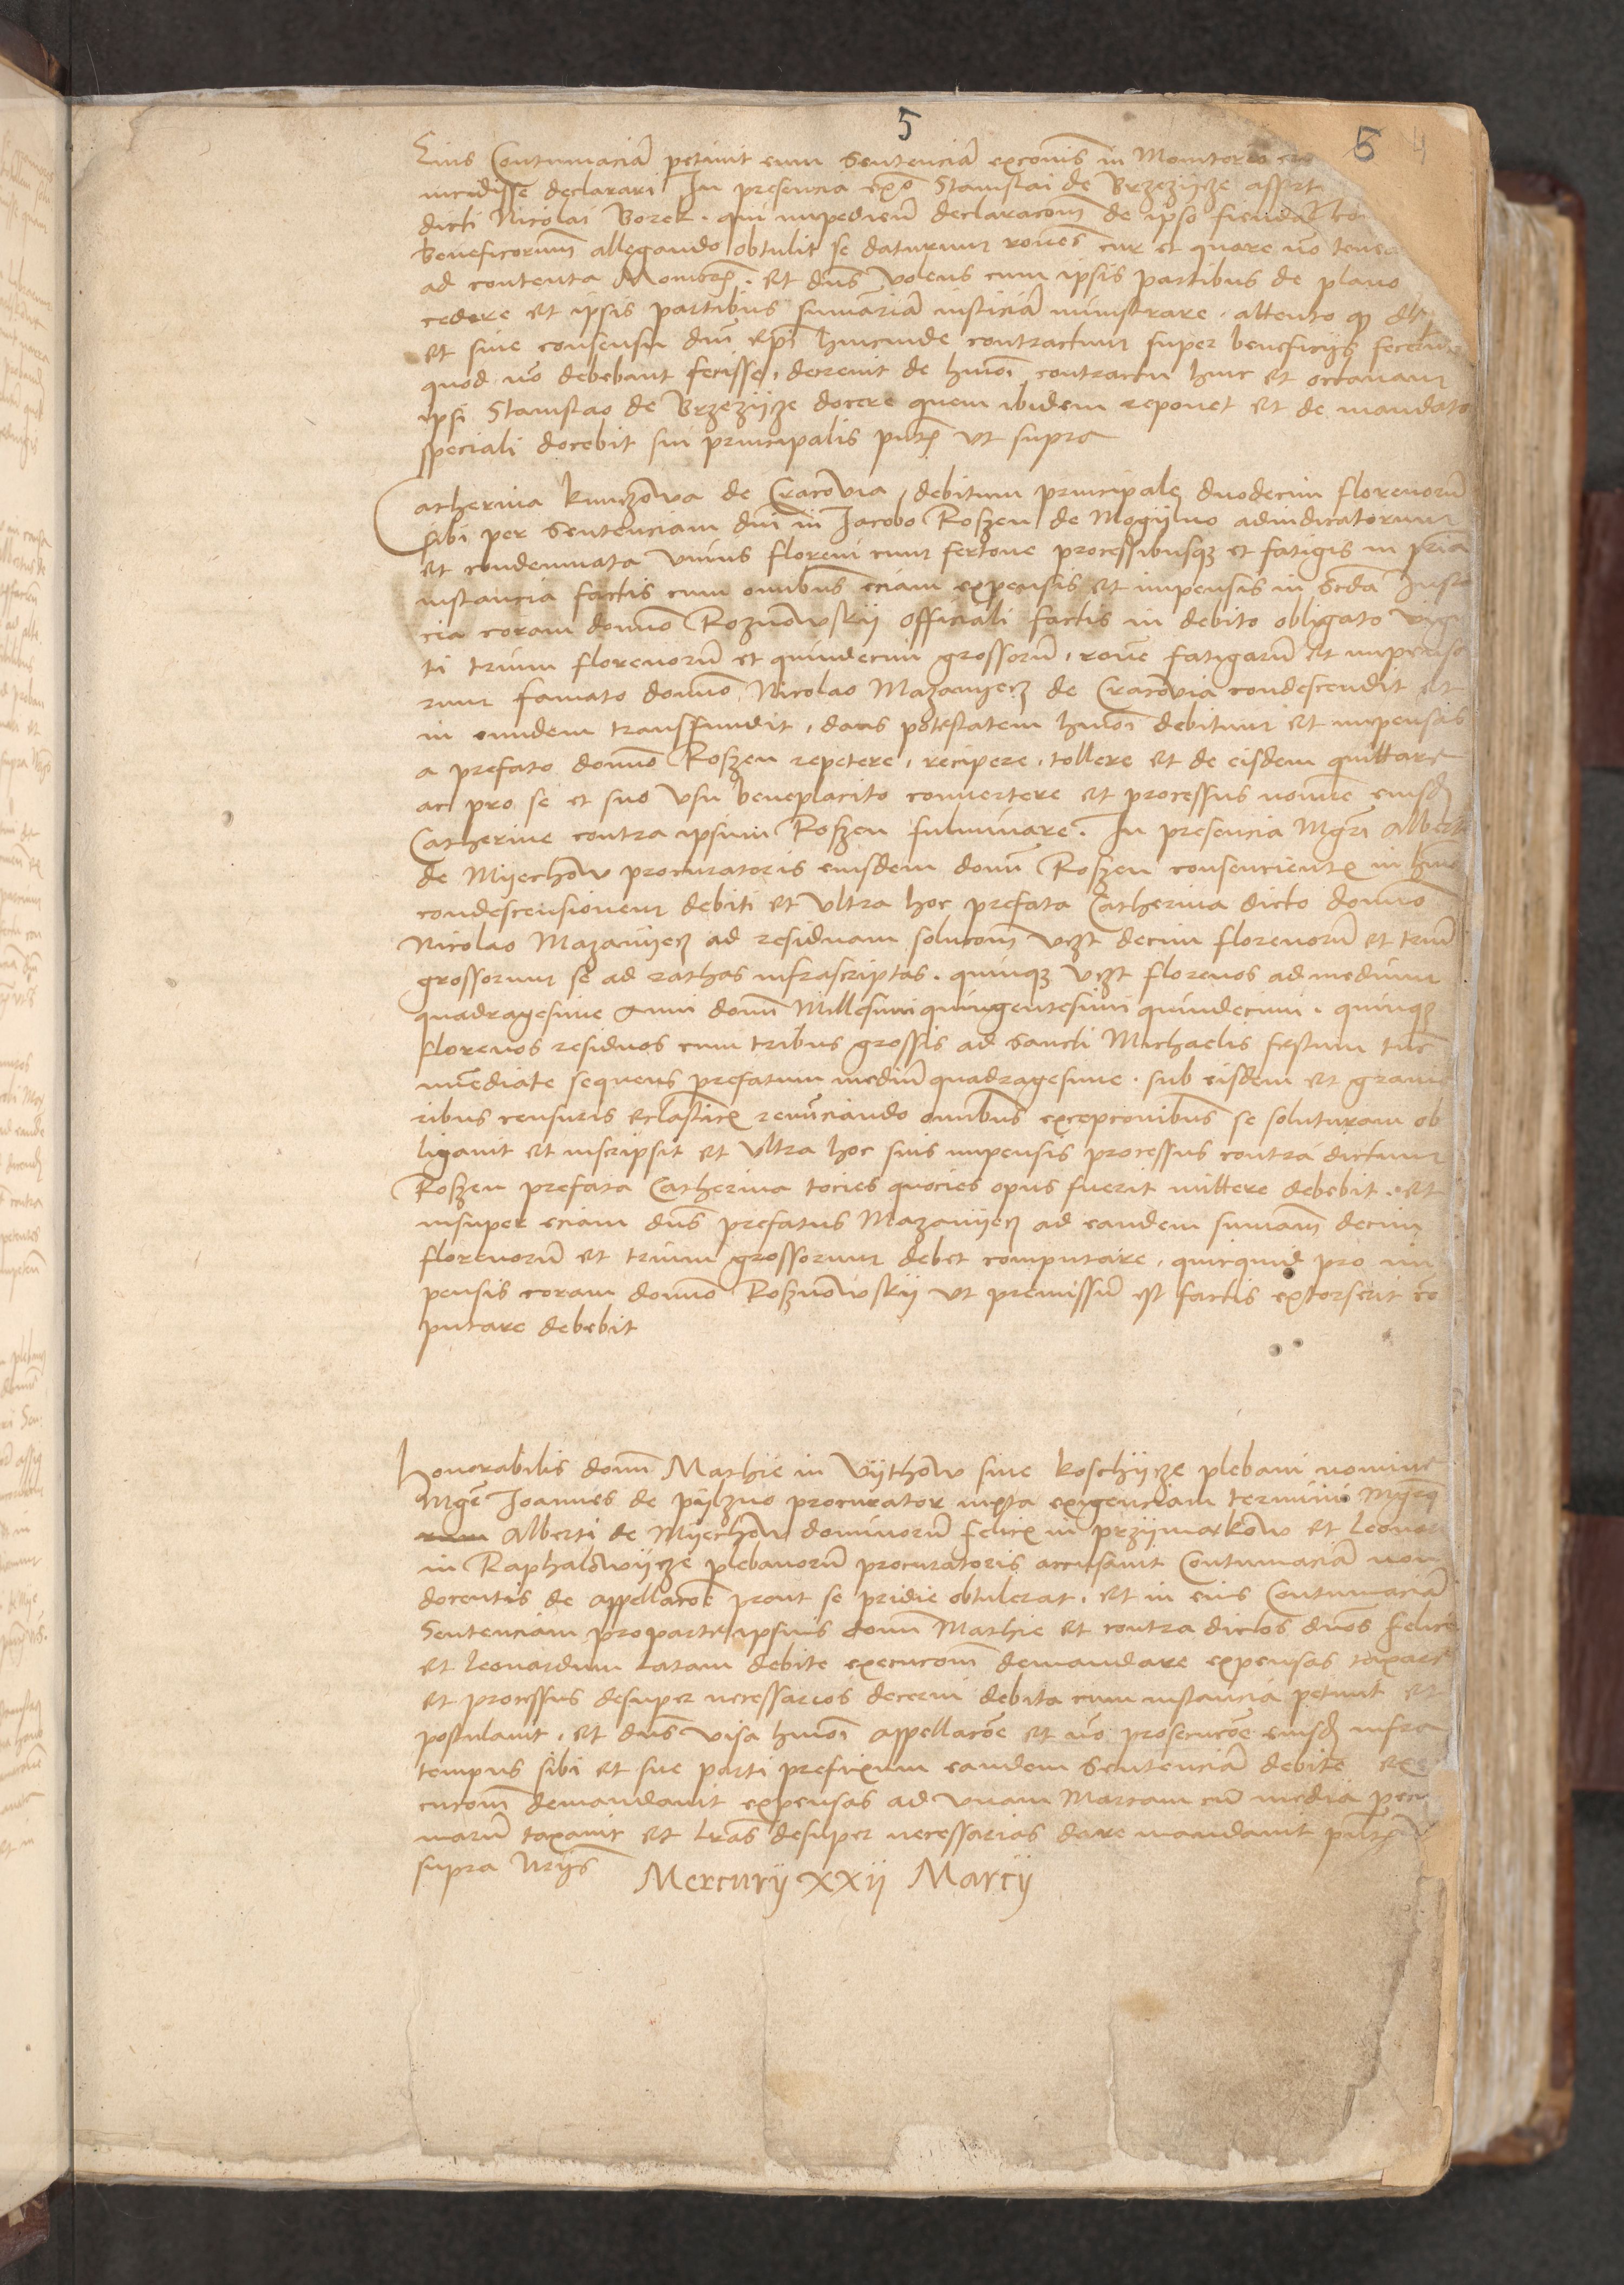 5
6 4
Eius Contumaciā petiuit eum Sentenciā excōīs in Monitorio
incidisse declarari In presencia eȝo Stanislai de Brzezycze assert
dicti Nicolai Borek. qui impedienū declaracōīn de ipso fiendā
beneficiorum allegando obtulit se daturum rōnes cur et quare nō
ad contenta . et dūs volens cum ipsis partibus de plano
cedere et ipsis partibus sumāriā iusticiā ministrare. attento qp
et sine consensu dnī epī hincinde contractum super beneficijs
quod nō debebant fecisse, decreuit de hmōi contractu hinc et octauam
ipsi Stanislao de Brzezycze docere quem ibidem reponet et de mandato
speciali docebit sui principalis pntȝ vt supra
Catherina kunczowa de Cracouia debitum principale duodecim florenorū
sibi per Sentenciam dnī in Jacobo Roszen de Mogylno adiudicatorum
et condemnata vnius floreni cum fertone processibusqȝ et fatigis in pria
instancia factis cum omībus eciam expensis et impensis in Scdā Insta
cia coram domīo Roznowskij officiali factis in debito obligato vigi
ti trium florenorū et quindecim grossorū, rōne fatigarū et impensa
rum famato domīo Nicolao Mazanyecz de Cracouia condescendit et
in eundem transfundit, dans potestatem hmōi debitum et impensas
a prefato domīo Roszen repetere, recipere, tollere et de eisdem quittare
ac pro se et suo vsu beneplacito conuertere et processus nomīe eiusdȝ
Catherine contra ipsum Roszen fulminare. In presencia Mgrī Alberti
de Myechow procuratoris eiusdem domī Roszen consencientȝ in
condescensionem debiti et vltra hoc prefata Catherina dicto domīo
Nicolao Mazanyecz ad residuam solucōīn vcȝt decim florenorū et triū
grossorum se ad rathas infrascriptas. quinqȝ vcȝt florenos ad mediūm
quadragesime Anni domī Millesimi quingentesimi quindecimi. quinqȝ
florenos residuos cum tribus grossis ad Sancti Michaelis festum tūc
īmediate sequens prefatum mediū quadragesime. sub eisdem et grauio
ribus censuris ecclāsticȝ renūciando omībus excepcionibus se soluturam ob
ligauit et inscripsit et vltra hoc suis impensis processus contra dictum
Roszen prefata Catherina tocies quocies opus fuerit mittere debebit. et
insuper eciam dūs prefatus Mazanyecz ad eandem sumām decim
florenorū et trium grossorum debet computare, quicquid pro im
pensis coram domīo Rosznowskij vt premissū est factis extorserit cō
putare debebit
Honorabilis domī Mathie in Vythow siue koschycze plebani nomine
Mgr Joannes de pylzno procurator iuxta exigenciam termini
Alberti de Myechow dominorū felicȝ in przymatkow et Leonar
in Raphalowycze plebanorū procuratoris accusauit Contumaciā non
docentis de appellacōe prout se pridie obtulerat. et in eius Contumaciā
Sentenciam pro parte ipsius domī Mathie et contra dictos dnōs felice
et Leonardum latam debite execucōīn demandare expensas taxare
et processus desuper necessarios decerni debita cum instancia petiuit et
postulauit. et dūs visa hmōi appellacōe et nō prosecucōe eiusdȝ infra
tempus sibi et sue parti prefixum eandem Sentenciā debite exe
cucōīn demandauit expensas ad vnam Marcam cū media pecu
niarū taxauit et lrās desuper necessarias dare mandauit pntȝ
supra
Mercurij xxij Marcij